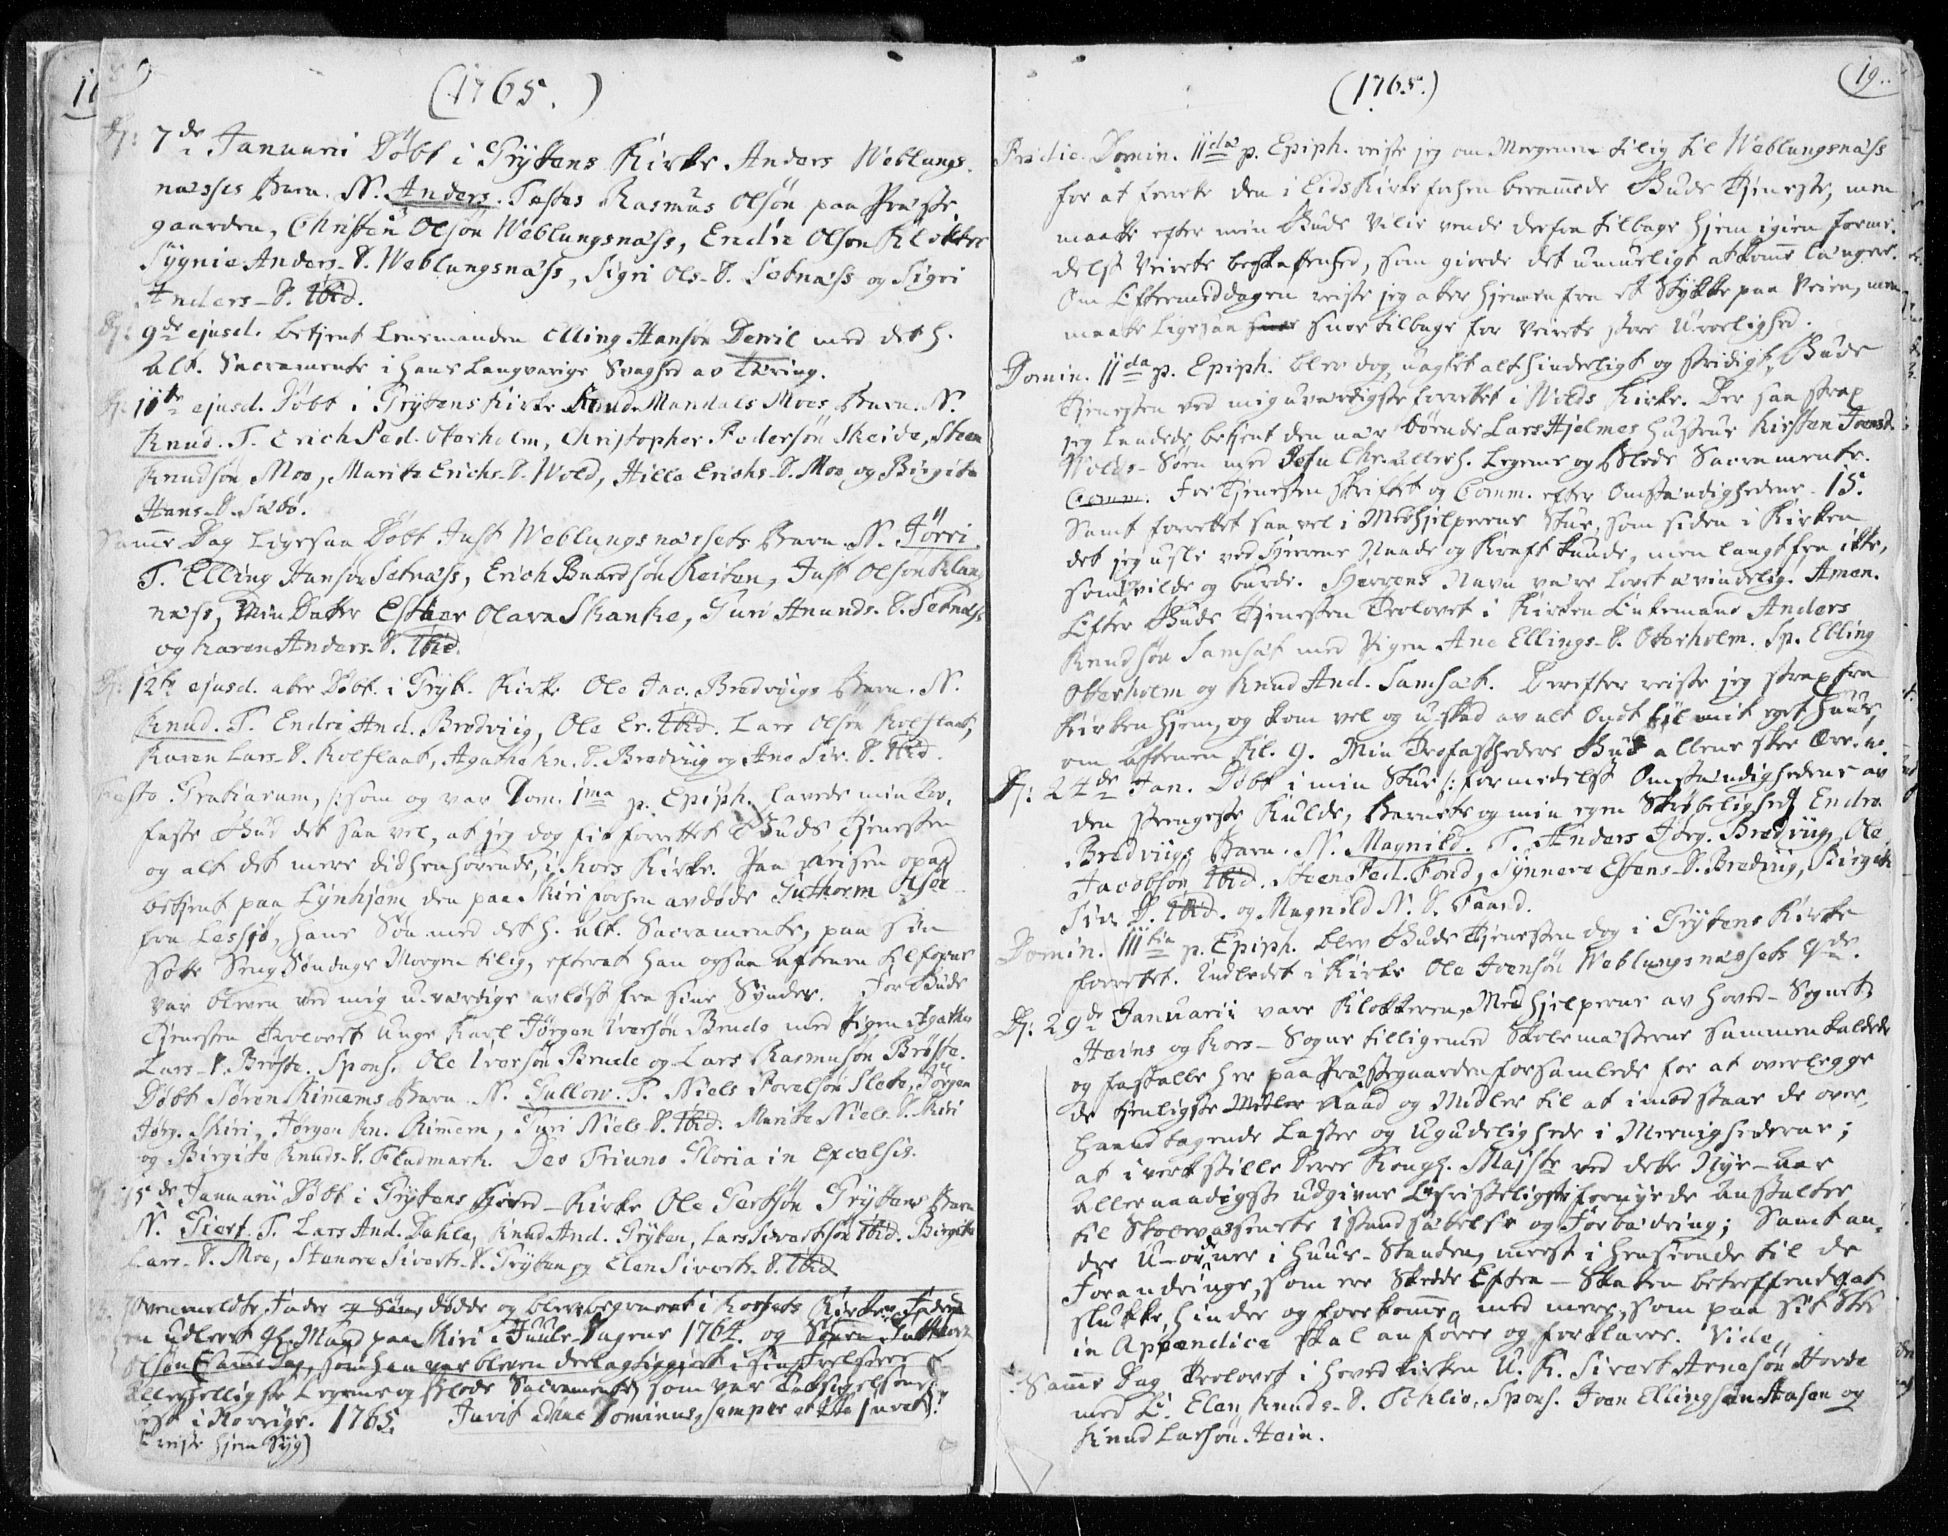 (1765.)
D: 7de Januarii Döbt i Grÿtens Kirke Anders Weblungs-
næsses Barn. N. Anders. Testes Rasmus Olsön paa Præste-
gaarden, Christen Olsön Weblungsnæss, Endre Olsön Klokker
Sÿgnie Anders-D. Weblungsnæss, Sigri Ols-D. Setnæss og Sigri
Anders-D. Ibid.
D: 9de ejusd. betjent Lensmanden Elling Hansön Devil med det h.
Alt. Sacramente i hans Langvarige Svaghed av Tæring.
D: 11te ejusd. Döbt i Grÿtens Kirke Knud Mandals Moes Barn. N.
Knud. T. Erich Ped. Oterholm, Christopher Pedersön Skeide, Steen
Knudsön Moe, Marite Erichs-D. Wold, Hille Erichs-D. Moe og Birgite
Hans-D. Sæbö.
Samme Dag Ligesaa Döbt Just Weblungsnæssets Barn N. Jörri.
T. Elling Hansön Setnæss, Erich Baardsön Reiten, Just Olsön
næss, Min Dater Esther Olava Skanke, Guri Amunds-D. Setnæss
og Karen Anders-D. Ibid.
D: 12te ejusd. ater Döbt i Grÿt. Kirke Ole Jac. Brevigs Barn. N.
Knud. T. Endre And. Brödviig, Ole Er. Ibid. Lars Olsön Kolflaat,
Karen Lars-D. Kolflaat, Agathe Kn. D. Brödviig og Ane Siv. D. Ibid.
Festo Gratiarum, /: som og var Dom. 1ma p. Epiph. lavede min Tro-
faste Gud det saa vel, at jeg dog fik forrettet Guds Tjenesten
og alt det mere did henhörende, i Kors Kirke. Paa Reisen opad
betjent paa Lÿnhjem den paa Skiri forhen avdöde Guthorm Olsöe
fra Lessjö, hans Sön med det h. alt. Sacramente, paa sin
Sotte Seng Söndags Morgen tilig, efterat han ogsaa Aftenen tilforne
var bleven ved mig u-værdige avlöst fra sine Sÿnder. For Guds
Tjenesten Trolovet Unge Karl Jörgen Iversön Brude med Pigen Agathe
Lars-D. Bröste. Spons. Ole Iversön Brude og Lars Rasmusön Bröste.
Döbt Sören Rimmems Barn. N. Gullow. T. Niels Povelsön Slete, Jörgen
Jörg. Skiri, Jörgen Kn. Rimem, Guri Niels-D. Ibid. Marite Niels-D. Skiri
og Birgite Knuds-D. Fladmark. Deo Triuno Gloria in Excelsis.
15de Januarii Döbt i Grÿtens Hoved-Kirke Ole Gertsön Grÿtens Barn
N. Giert. T. Lars And. Dahle, Knud And. Grÿten, Lars Sivertsön Ibid. Birgite
Lars-D. Moe, Stenore Siverts-D. Grÿten og Elen Siverts-D. Ibid.
Ovenmeldte, Fader og Sön, dödde og blev begravet i Korssets Kirke, Faderen
en udlevet Mand paa Skiri i Juule Dagene 1764. og Sönnen Guthorm
Olsön samme Dag, som han var bleven deelagtiggiort i sin Frelseres
Allerhelligste Legeme og Blods Sacramente, som var Taksigelsens
Fest i Norrige. 1765. Juvit adhuc Dominus, semper et ita juvet!
(reiste hjem Sÿg)

19.
(1765.)
Pridie. Domin. IIda p. Epiph. reiste jeg om Morgenen tilig til Weblungsnæss
for at forrete den i Eids Kirke forhen berammede Guds Tjeneste, men
maatte efter min Guds Vilie vende derfra tilbage hjem igien forme-
delst Veirets beskafenhed, som giorde det umueligt at komme længere.
Om Eftermiddagen reiste jeg ater hjemmen fra et Stÿkke paa Veien, men
maatte Ligesaa snoe tilbage for Veirets store Uroelighed.
Domin. IIda p. Epiph. blev dog, uagtet alt hinderligt og stridigt, Guds
Tjenesten ved mig uværdigste forrettet i Volds Kirke. Der saa strax
jeg Landede betjent den nær döende Lars Hjelmes Hustrue Kirsten Ivers D.
Volds-Sæn med Jesu Chr. allerh. Legeme og Blods Sacramente.
Comm. For Tjenesten skriftet og Comm. efter Omstændighederne. 15.
Samt forrettet saavel i Medhjelperens Stue, som siden i Kirken
det jeg usle ved Hjerrens Naade og Kraft kunde, men langt fra ikke,
som vilde og burde. Hjerrens Navn være Lovet ævindelig. Amen.
Efter Guds Tjenesten Trolovet i Kirken Enkemand Anders
Knudsön Samsæt med Pigen Ane Ellings-D. Oterholm. Sp. Elling
Oterholm og Knud And. Samsæt. Derefter reiste jeg strax fra
Kirken hjem, og kom vel og u-skad av alt Ondt til mit eget Huus,
om Aftenen Kl. 9. Min Trofasthedens Gud allene skee Ære.
D: 24de Jan. Döbt i min Stue /: formedelst Omstændighederne av
den strengeste Kulde, Barnets og min egen Skröbelighed Endre
Brödviigs Barn. N. Magnild. T. Anders Jörg. Brödviig, Ole
Jacobsön Ibid. Steen Ped. Fond, Sÿnneve Estens-D. Brödviig, Birgite
Siv. D. Ibid. og Magnild N. D. Faard.
Domin. IIItia p. Epiph. blev Guds Tjenesten dog i Grÿtens Kirke
forrettet. Indledet i Kirke Ole Ivensön Weblungsnæssets Qde.
D: 29de Januarii vare Klokkeren, Medhjelperne av Hoved-Sognet,
Heins og Kors-Sogne tilligemed Skolemæsterne sammenkaldede
og fastalle her paa Præstegaarden forsamlede for at overlegge
de tjenligste Midler Raad og Midler til at imodstaae de over-
haandtagende Laster og Ugudelighede i Menighederne;
at iverkstille Deres Kongl. Majsts ved dette Nÿe-Aar
Allernaadigst udgivne Christeligste fornÿede Anstalter
til Skolevæssenets istandsættelse og Forbædring; Samt an-
dre U-ordner i Huus-Standen, meest i henseende til de
Forandringe, som ere Skeede Extra-Skatten betreffende, at
slukke, hindre og forekomme, med mere, som paa sit Sted
in Appendice skal anföres og forklares. Vide,
Samme Dag Trolovet i Hovedkirken U. K. Sivert Arnesön Horde
med Pi. Elen Knuds-D. Öehlie. Spons. Iven Ellingsön Aasen og
Knud Larsön Hein.